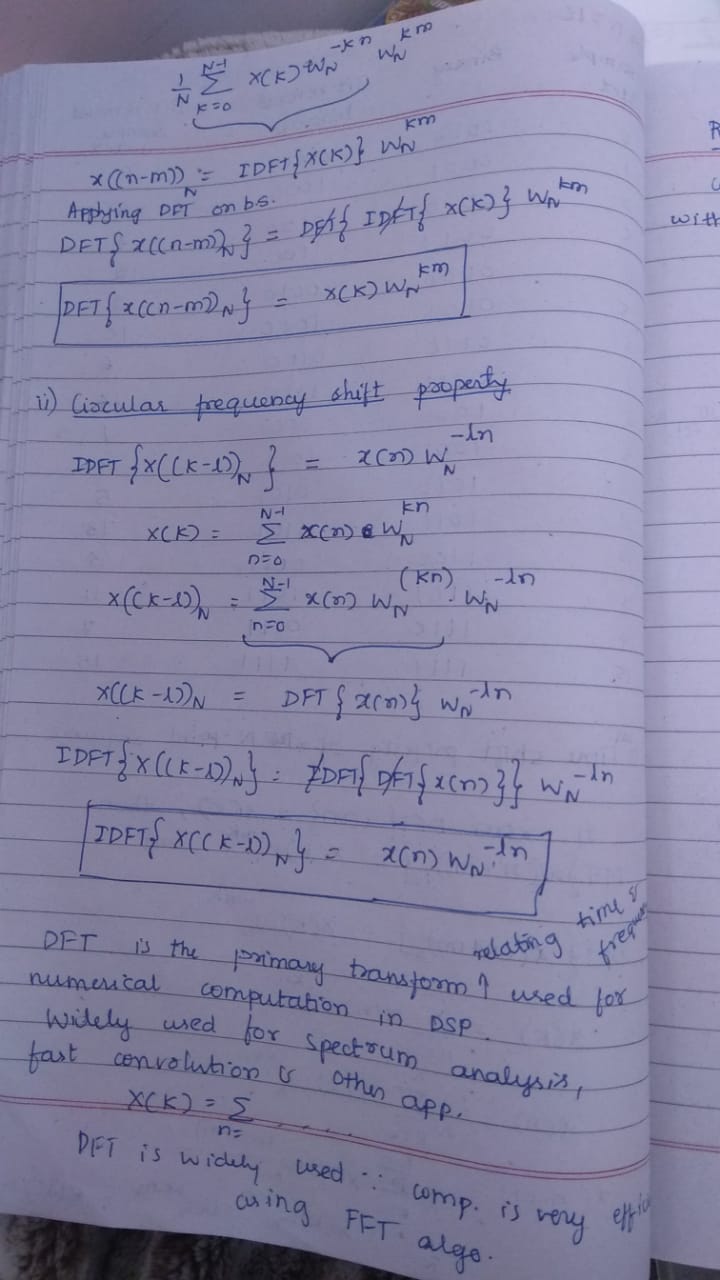 1/N Σ_{k=0}^{N-1} X(K) W_N^{-kn} W_N^{km}
x((n-m))_N = IDFT{X(K)} W_N^{km}
Applying DFT on b.s.
DFT{ x((n-m))_N } = DFT{ IDFT{ X(K)} W_N^{km}
DFT{ x((n-m))_N } = X(K) W_N^{km}
ii) Circular frequency shift property
IDFT {X((K-l))_N } = x(n) W_N^{-ln}
X(K) = Σ_{n=0}^{N-1} x(n) W_N^{kn}
X((K-l))_N = Σ_{n=0}^{N-1} x(n) W_N^{(kn)} . W_N^{-ln}
X((K-l))_N = DFT { x(n)} W_N^{-ln}
IDFT{X((K-l))_N} = IDFT{ DFT{x(n)}} W_N^{-ln}
IDFT{ X((K-l))_N} = x(n) W_N^{-ln}
relating time &
DFT is the primary transform ↑ used for
numerical computation in DSP.
Widely used for spectrum analysis,
fast convolution & other app.
X(K) = Σ_{n=} .....
DFT is widely used ∵ comp. is very
using FFT algo.
with